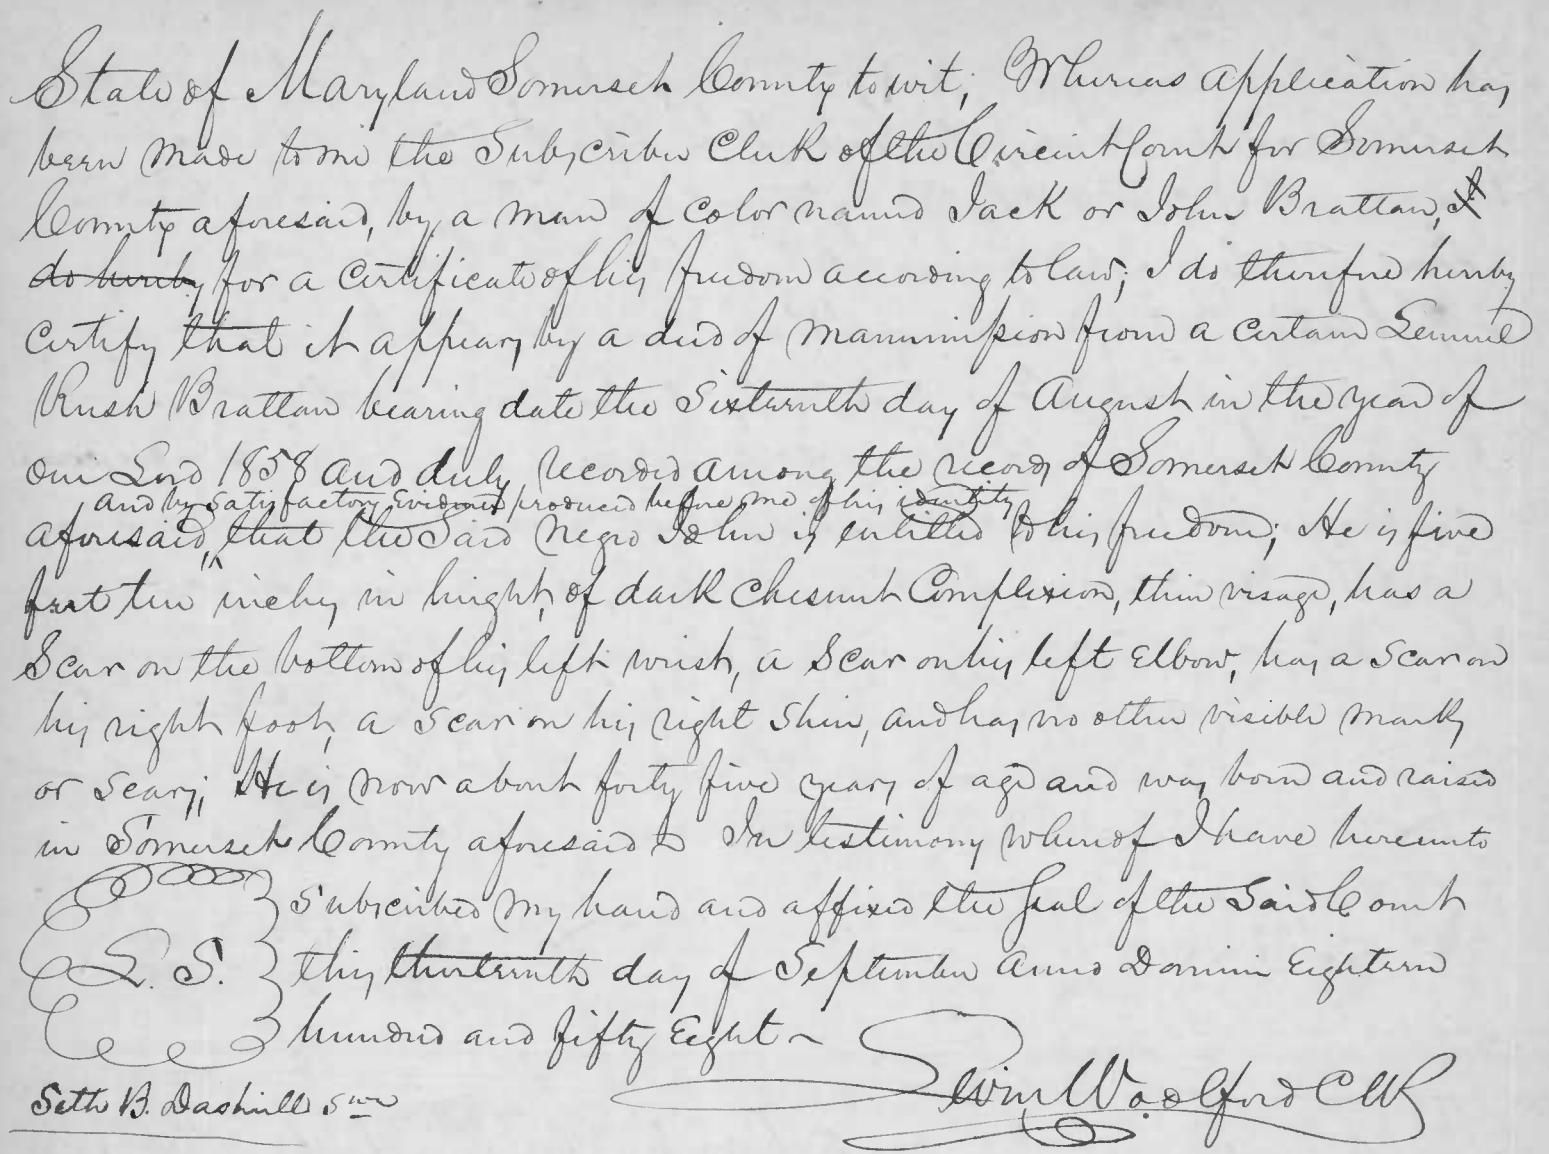 State of Maryland Somerset County to wit; Whereas application has
been made to me the Subscriber Clerk of the Circuit Court for Somerset
County aforesaid, by a man of color named Jack or John Brattan, I
do hereby for a Certificate of his freedom according to law; I do therefore hereby
certify that it appears by a deed of manumission from a certain Lemuel
Rush Brattan bearing date the Sixteenth day of August in the year of
our Lord 1858 and duly recorded among the records of Somerset County
and by satisfactory Evidence produced before me of his identity
aforesaid, that the Said Negro John is entitled to his freedom; He is five
feet ten inches in hieght, of dark Chesnut Complexion, thin visage, has a
Scar on the bottom of his left wrist, a Scar on his left Elbow, has a scar on
his right foot, a scar on his right Shin, and has no other visible marks
or scars; He is now about forty five years of age and was born and raised
in Somerset County aforesaid In testimony whereof I have hereunto
Subscribed my hand and affixed the seal of the Said Court
L. S. this thirteenth day of September Anno Domini Eighteen
hundred and fifty Eight ~
Levin Woolford Clk
Seth B. Dashiell